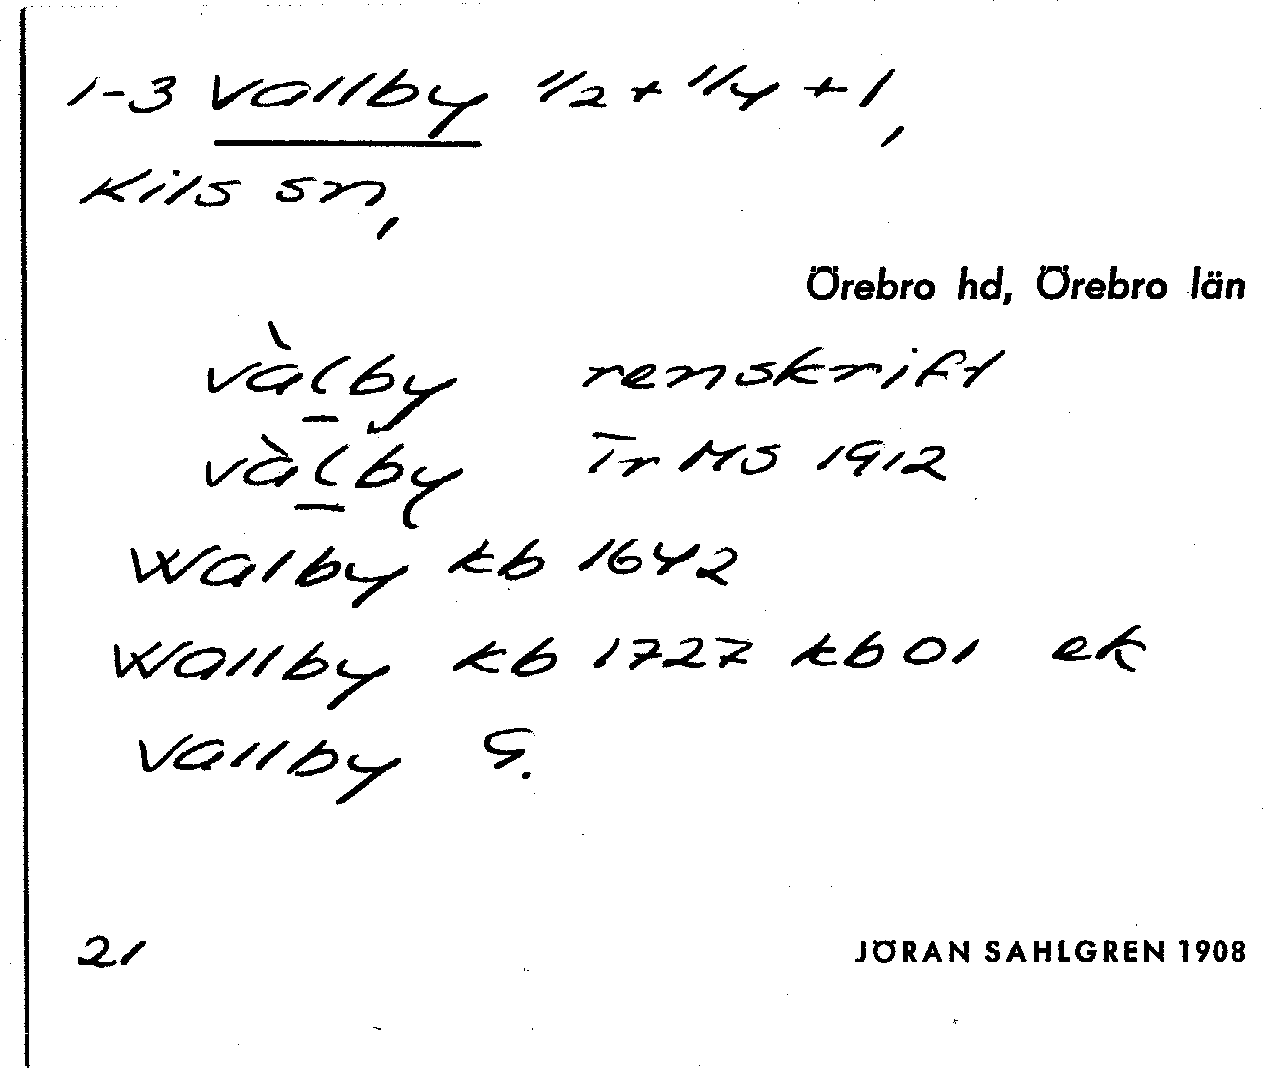 1-3 Vallby 1/2 + 1/4 + 1,
Kils sn,
Örebro hd, Örebro län
vàlby renskrift
vàlby Tr MS 1912
Walby kb 1642
Wallby kb 1727 kb 01 ek
Vallby G.
21 JÖRAN SAHLGREN 1908